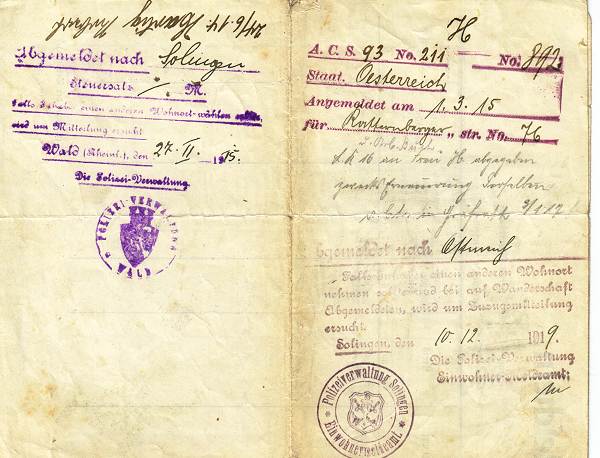 24/6.14.
Abgemeldet nach Solingen
Steuersatz M
Falls Inhaber einen anderen Wohnort wählen sollte,
wird um Mitteilung ersucht
Wald (Rheinl.), den 27. II. 1915.
Die Polizei-Verwaltung
POLIZEI-VERWALTUNG
WALD
H
A. C. S. 93 No. 211 No. 892
Staat. Oesterreich
Angemeldet am 1. 3. 15
für Rattenberger str. No. 76
16 an H abgegeben
zwecks Erneuerung derselben
Abgemeldet nach Östreich
Falls Inhaber einen anderen Wohnort
nehmen sollte und bei auf Wanderschaft
Abgemeldeten, wird um Zuzugsmitteilung
ersucht.
Solingen, den 10. 12. 1919.
Die Polizei-Verwaltung
Einwohner-Meldeamt;
Polizeiverwaltung Solingen
Einwohnermeldeamt.